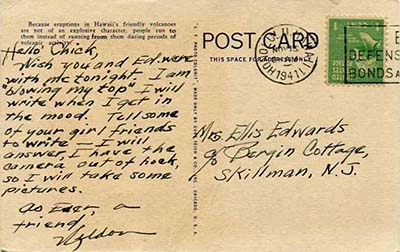 Because eruptions in Hawaii's friendly volcanoes
are not of an explosive character, people run to
them instead of running from them during periods of
volcanic activity.
Hello Chick,
Wish you and Ed. were
with me tonight. I am
"blowing my top" I will
write when I get in
the mood. Tell some
of your girl friends
to write — I will
answer. I have the
camera out of hock,
so I will take some
pictures.
As Ever, a
friend
Weldon
POST CARD
THIS SPACE FOR
1941
DEFENSE
BONDS
Mrs. Ellis Edwards
c/o Bergin Cottage,
Skillman, N.J.